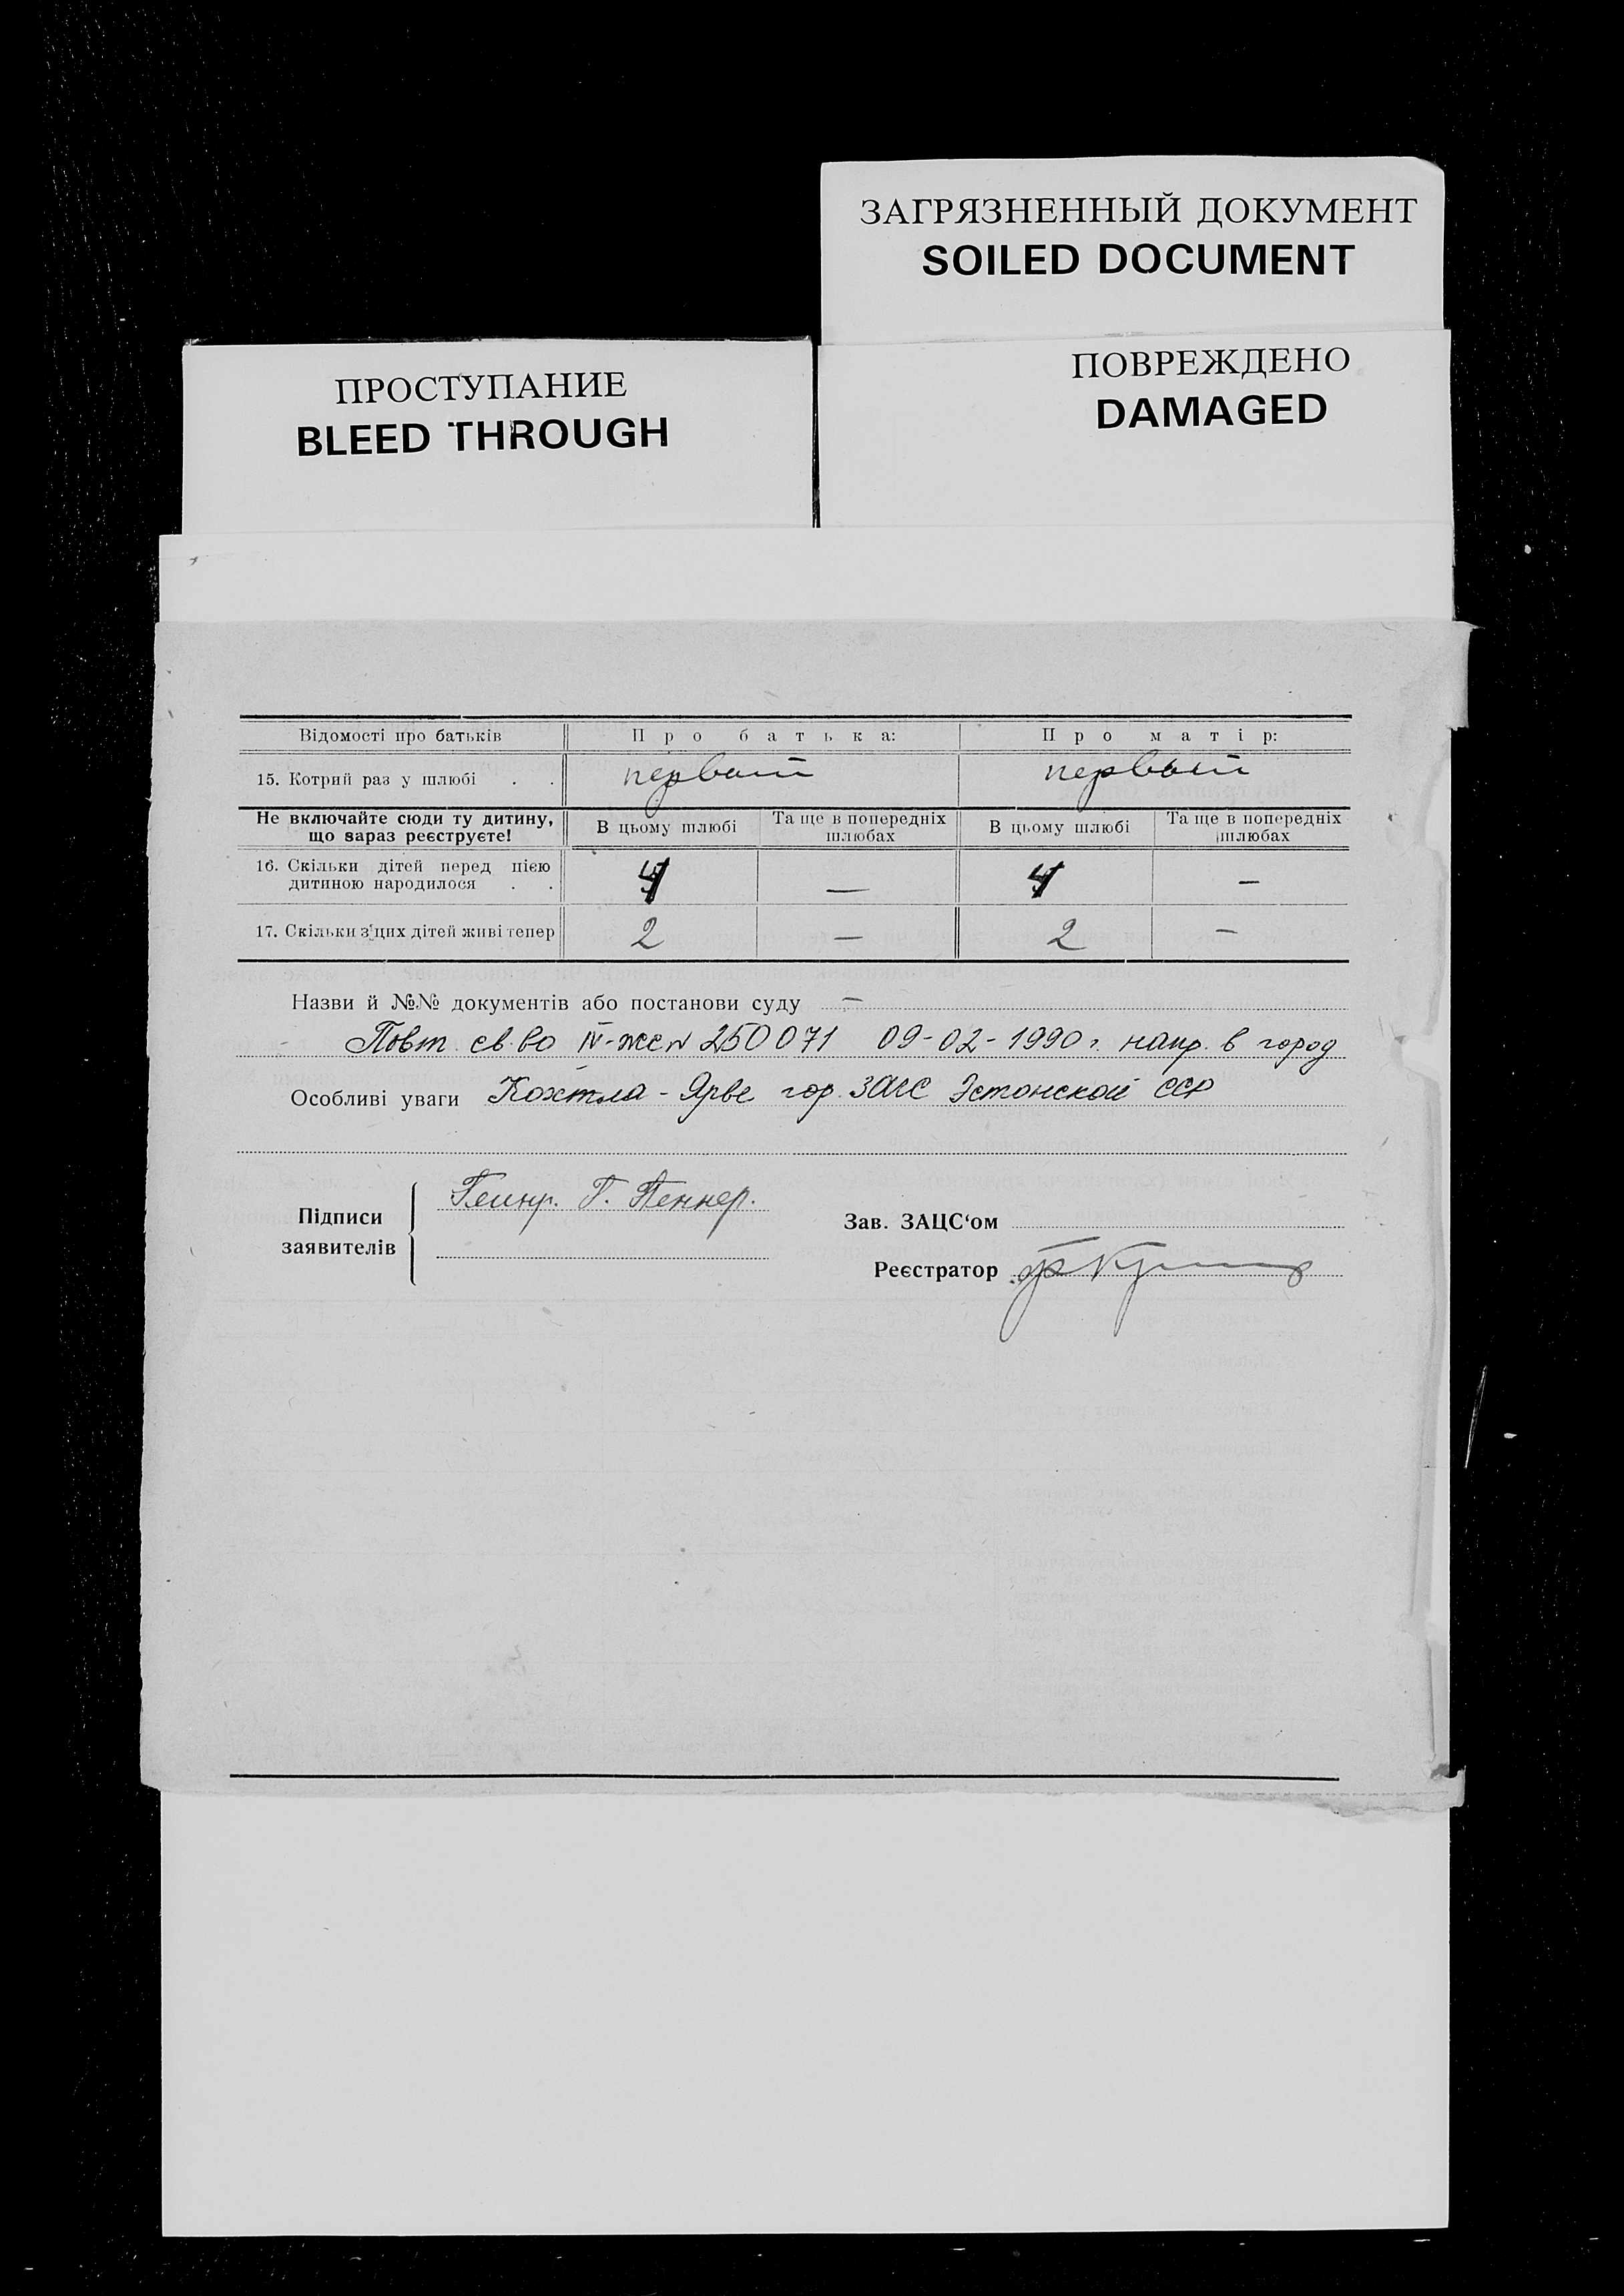 ЗАГРЯЗНЕННЫЙ ДОКУМЕНТ
SOILED DOCUMENT
ПРОСТУПАНИЕ
BLEED THROUGH
ПОВРЕЖДЕНО
DAMAGED
Відомості про батьків Про батька: Про матір:
15. Котрий раз у шлюбі . . первый первый
Не включайте сюди ту дитину, що зараз реєструєте! В цьому шлюбі Та ще в попередніх шлюбах В цьому шлюбі Та ще в попередніх шлюбах
16. Скільки дітей перед цією
дитиною народилося . . 4 — 4 —
17. Скільки з цих дітей живі тепер 2 — 2 —
Назви й №№ документів або постанови суду —
Повт. св-во IV-ЖС № 250071 09-02-1990 г. напр. в город
Особливі уваги Кохтла-Ярве гор. ЗАГС Эстонской ССР
Підписи
заявителів
Г. Пеннер.
Зав. ЗАЦС‘ом
Реєстратор